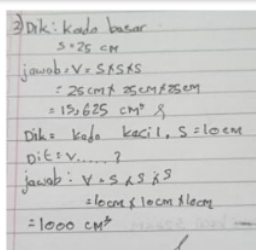 3) Dik: kado besar
s = 25 cm
jawab: V = S×S×S
= 25cm × 25cm × 25cm
= 15,625 cm³
Dik = kado kecil, s = 10 cm
Dit = V.....?
jawab: V = S × S × S
= 10cm × 10cm × 10cm
= 1000 cm³